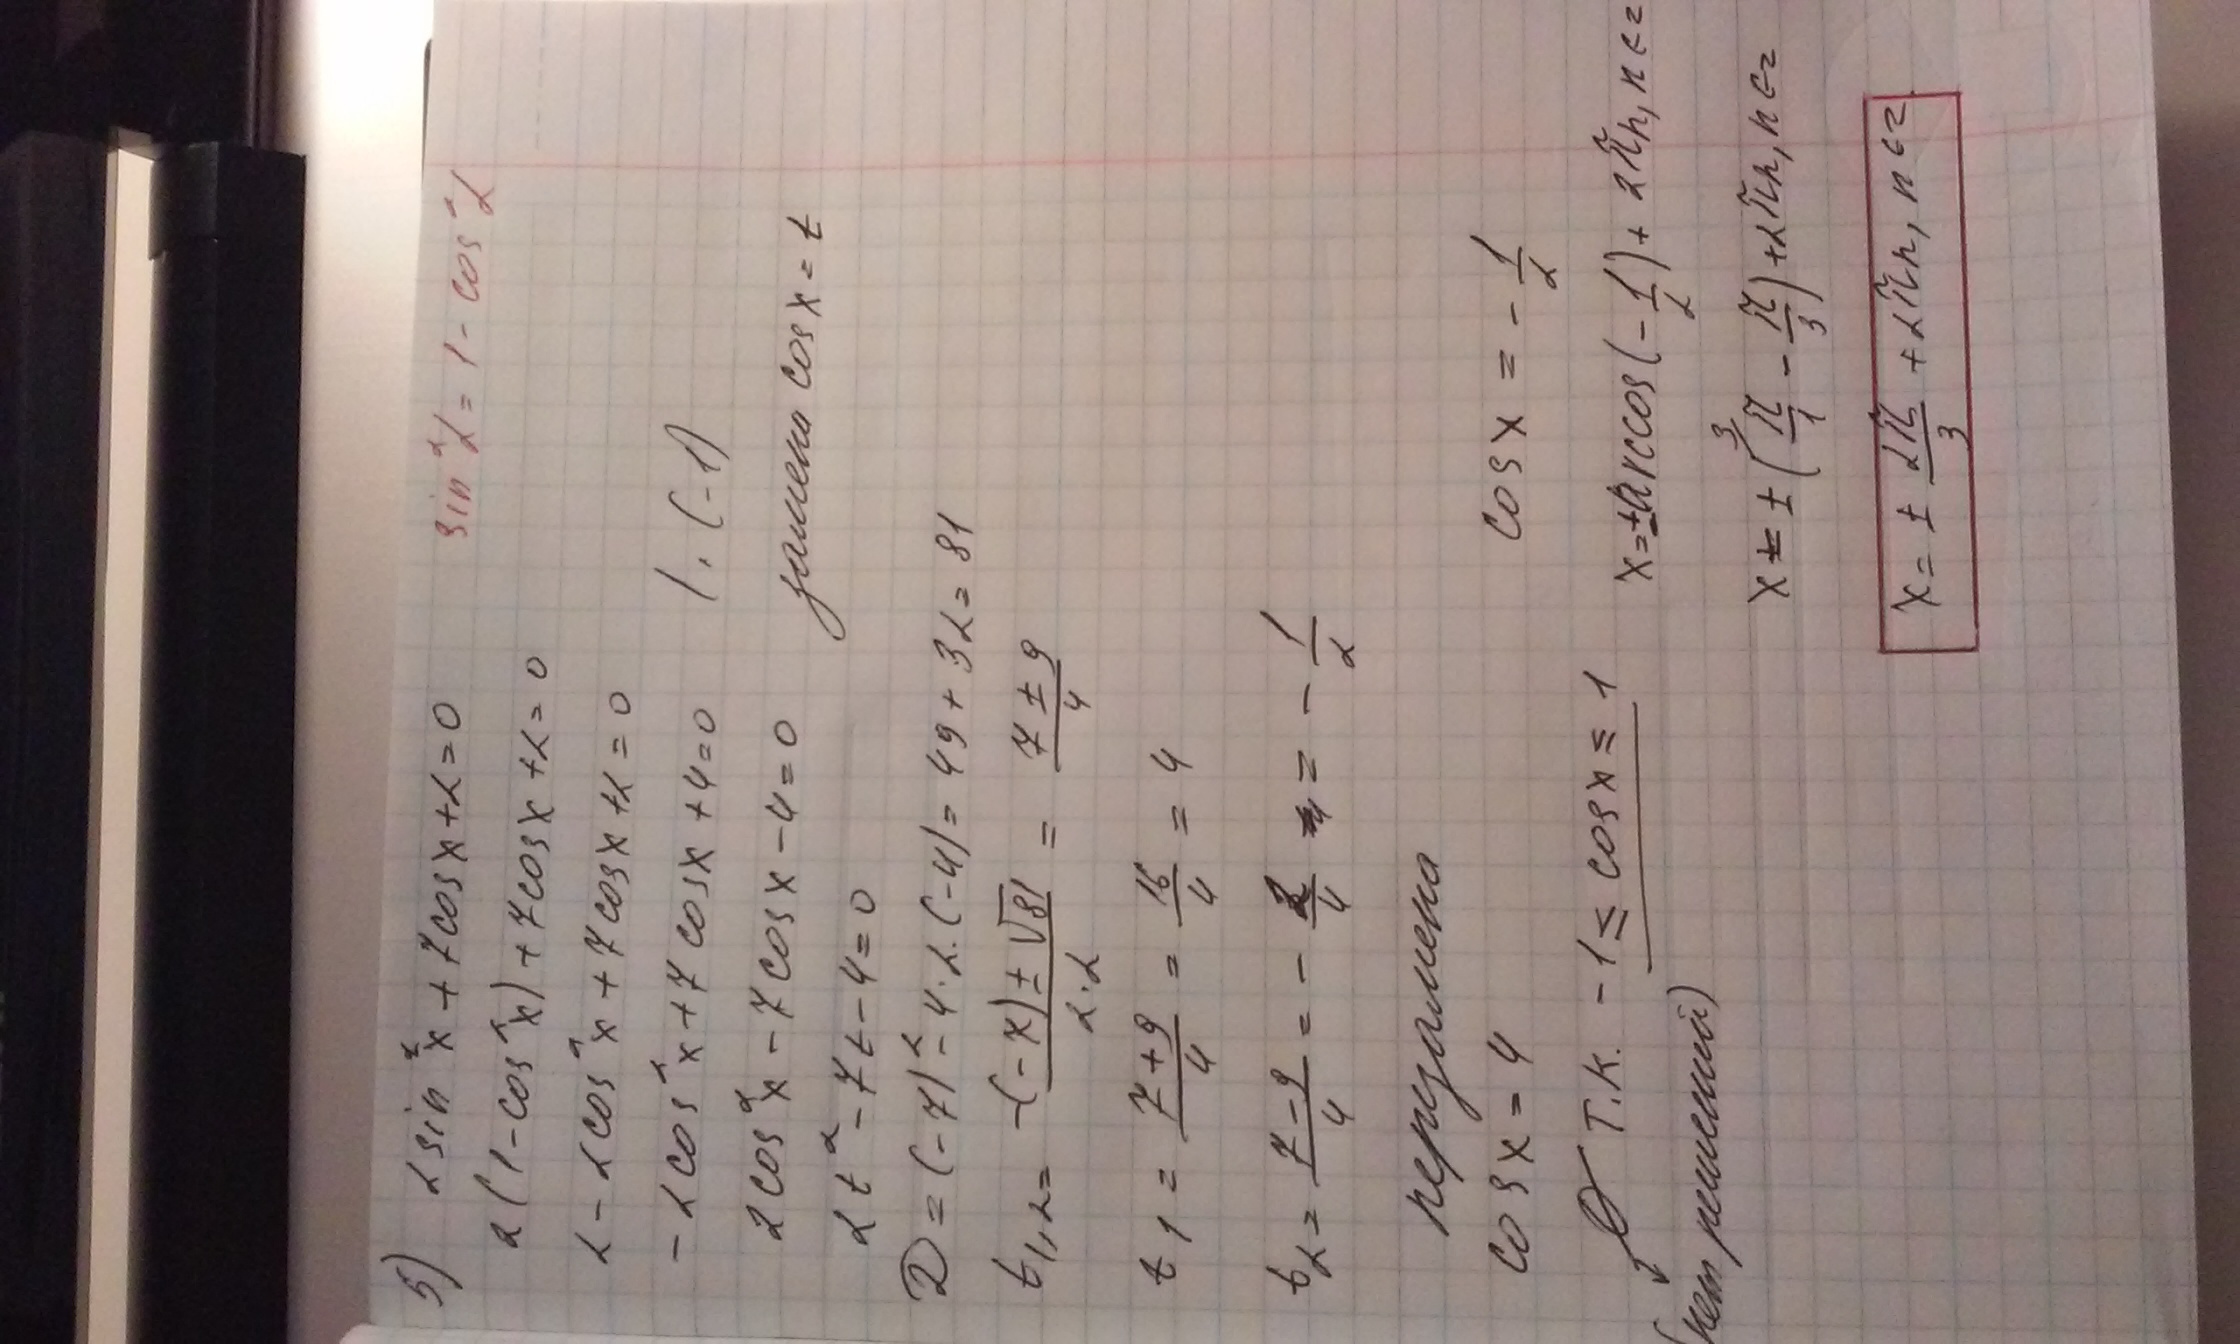 5) 2sin²x + 7cosx+2=0 sin²α = 1 - cos²α
2(1-cos²x)+7cosx+2=0
2-2cos²x+7cosx+2=0
-2cos²x+7cosx+4=0 |·(-1)
2cos²x-7cosx-4=0 замена cosx=t
2t²-7t-4=0
D=(-7)²-4·2·(-4)=49+32=81
t1,2= -(-7)±√81 / 2·2 = 7±9 / 4
t1= 7+9 / 4 = 16/4 = 4
t2= 7-9 / 4 = - 2/4 = - 1/2
перезамена
cosx=4 cosx = - 1/2
∅ т.к. -1≤cosx≤1 x=±arccos(-1/2)+2πn, n∈z
(нет решений) x = ±(π/1 ³ - π/3)+2πn, n∈z
x= ± 2π/3 + 2πn, n∈z